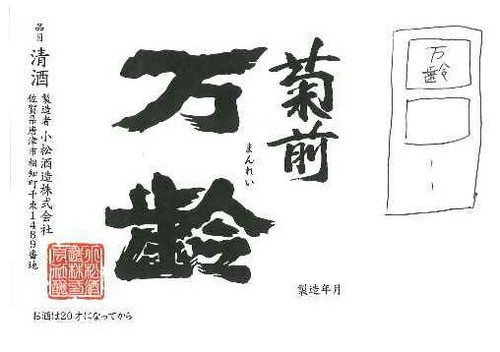 万
齢
菊前
万齢
まんれい
製造年月
品目 清酒
製造者 小松酒造株式会社
佐賀県唐津市相知町千束1489番地
お酒は20才になってから